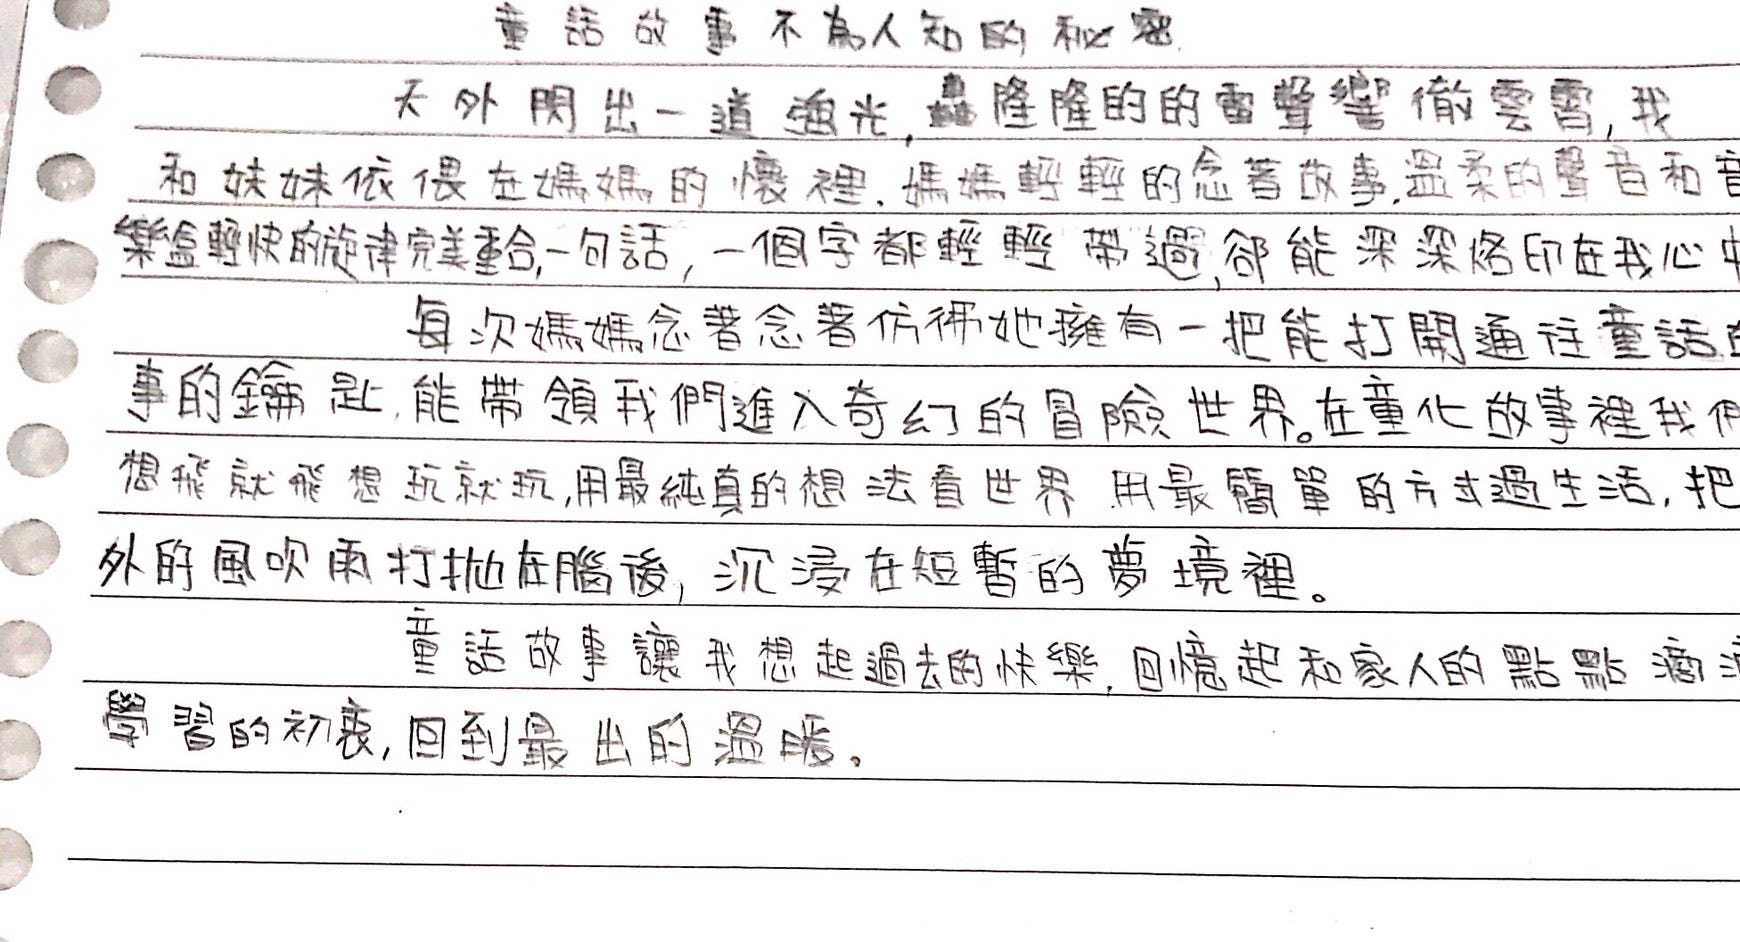 童話故事不為人知的秘密
天外閃出一道強光,轟隆隆的的雷聲響徹雲霄,我
和妹妹依偎在媽媽的懷裡,媽媽輕輕的念著故事,溫柔的聲音和音
樂盒輕快的旋律完美重合,一句話,一個字都輕輕帶過,卻能深深烙印在我心中
每次媽媽念著念著仿彿她擁有一把能打開通往童話
事的鑰匙,能帶領我們進入奇幻的冒險世界。在童化故事裡我們
想飛就飛想玩就玩,用最純真的想法看世界用最簡單的方式過生活,把
外的風吹雨打拋在腦後,沉浸在短暫的夢境裡。
童話故事讓我想起過去的快樂,回憶起和家人的點點滴滴
學習的初衷,回到最出的溫暖。